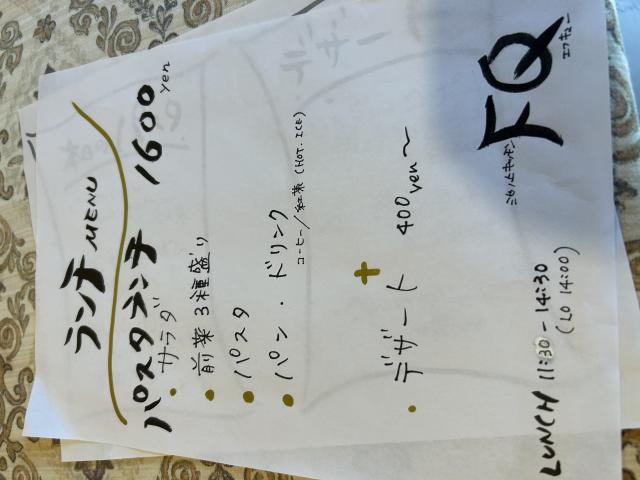 ランチ MENU
パスタランチ 1600 yen
・サラダ
・前菜3種盛り
・パスタ
・パン・ドリンク
コーヒー/紅茶 (HOT. ICE)
+
・デザート 400 yen〜
FQ
エフキュー
LUNCH 11:30-14:30
(LO 14:00)